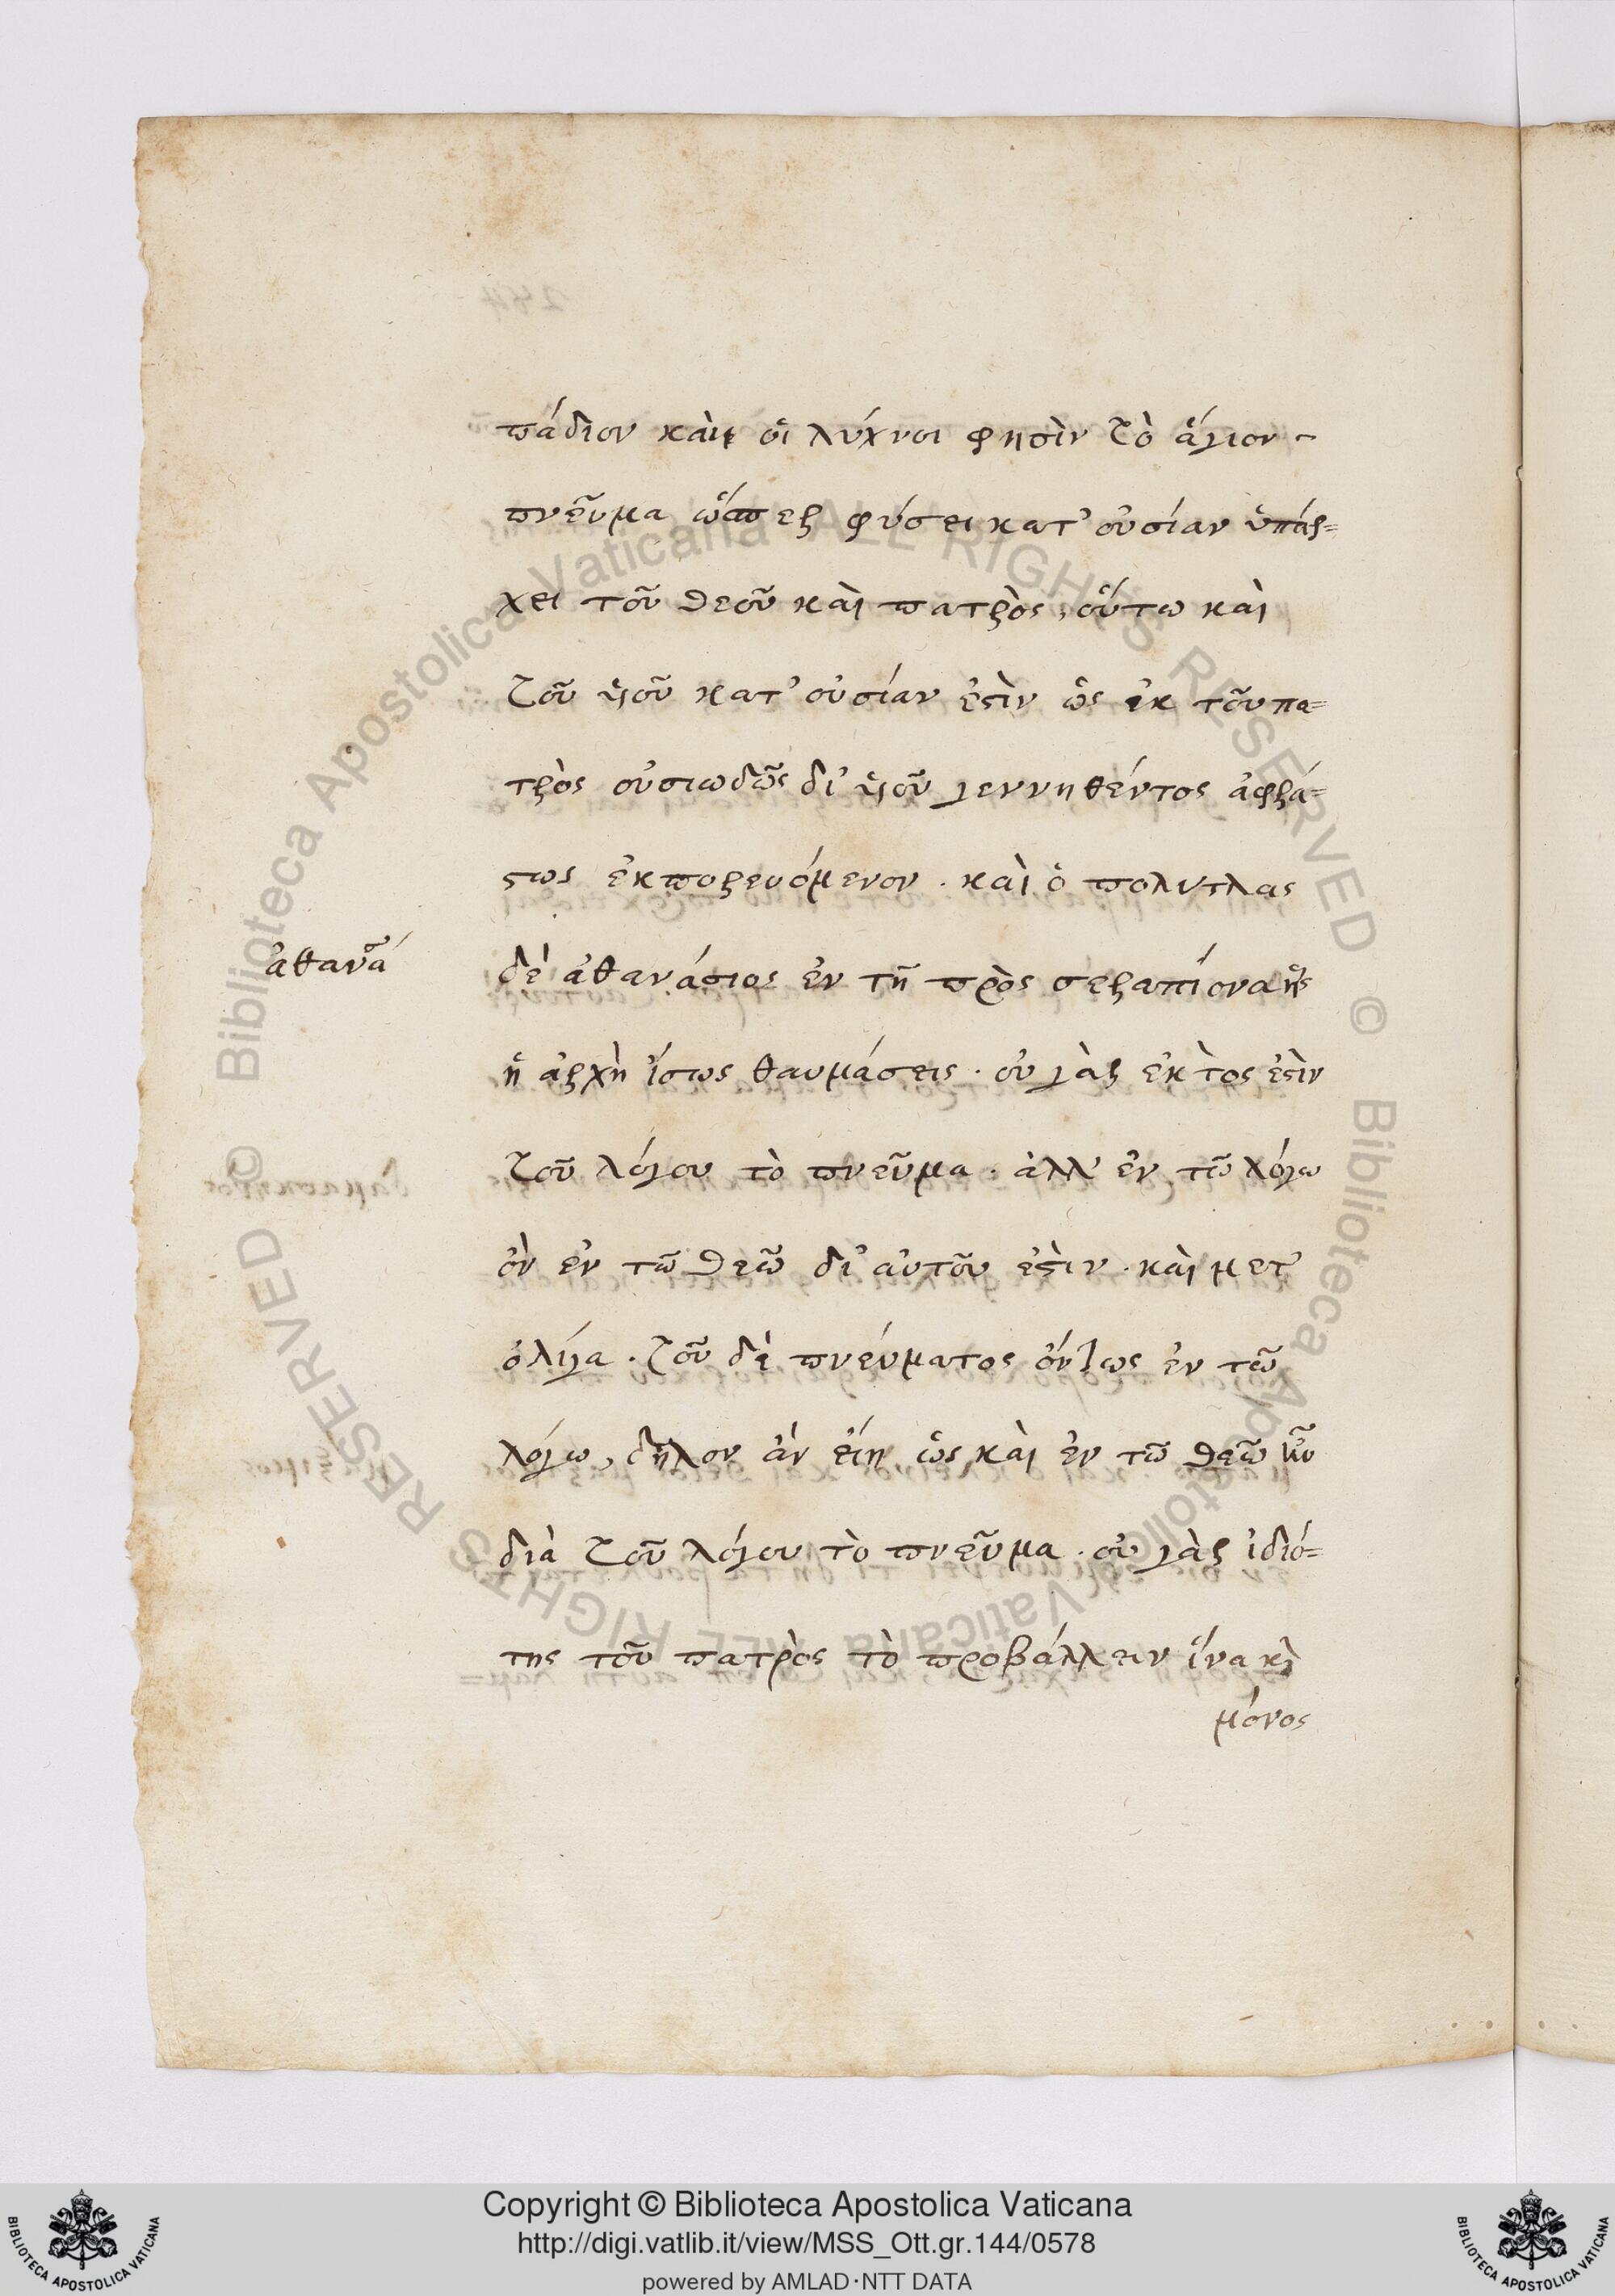 πάδιον καὶ οἱ λύχνοι φησὶν τὸ ἅγιον
πνεῦμα ὥσπερ φύσει κατ' οὐσίαν ὑπάρ=
χει τοῦ θεοῦ καὶ πατρὸς, οὕτω καὶ
τοῦ υἱοῦ κατ' οὐσίαν ἐστὶν ὡς ἐκ τοῦ πα=
τρὸς οὐσιωδῶς δι' υἱοῦ γεννηθέντος ἀφρά=
στως ἐκπορευόμενον. καὶ ὁ πολυτλας
ἀθανα
δὲ ἀθανάσιος ἐν τῆ πρὸς σεραπίονα ἧς
ἡ ἀρχὴ ἴσως θαυμάσεις. οὐ γὰρ ἐκτὸς ἐστὶν
τοῦ λόγου τὸ πνεῦμα. ἀλλ' ἐν τῶ λόγω
ὂν ἐν τῶ θεῶ δι' αὐτοῦ ἐστὶν. καὶ μετ'
ὀλίγα. τοῦ δὲ πνεύματος ὄντως ἐν τῶ
λόγω, δῆλον ἂν εἴη ὡς καὶ ἐν τῶ θεῶ ἦν
διὰ τοῦ λόγου τὸ πνεῦμα. οὐ γὰρ ἰδιό=
της τοῦ πατρὸς τὸ προβάλλειν ἵνα κὶ
μόνος
Copyright © Biblioteca Apostolica Vaticana
http://digi.vatlib.it/view/MSS_Ott.gr.144/0578
powered by AMLAD·NTT DATA
BIBLIOTECA APOSTOLICA VATICANA
BIBLIOTECA APOSTOLICA VATICANA
© Biblioteca Apostolica Vaticana ALL RIGHTS RESERVED
© Biblioteca Apostolica Vaticana ALL RIGHTS RESERVED